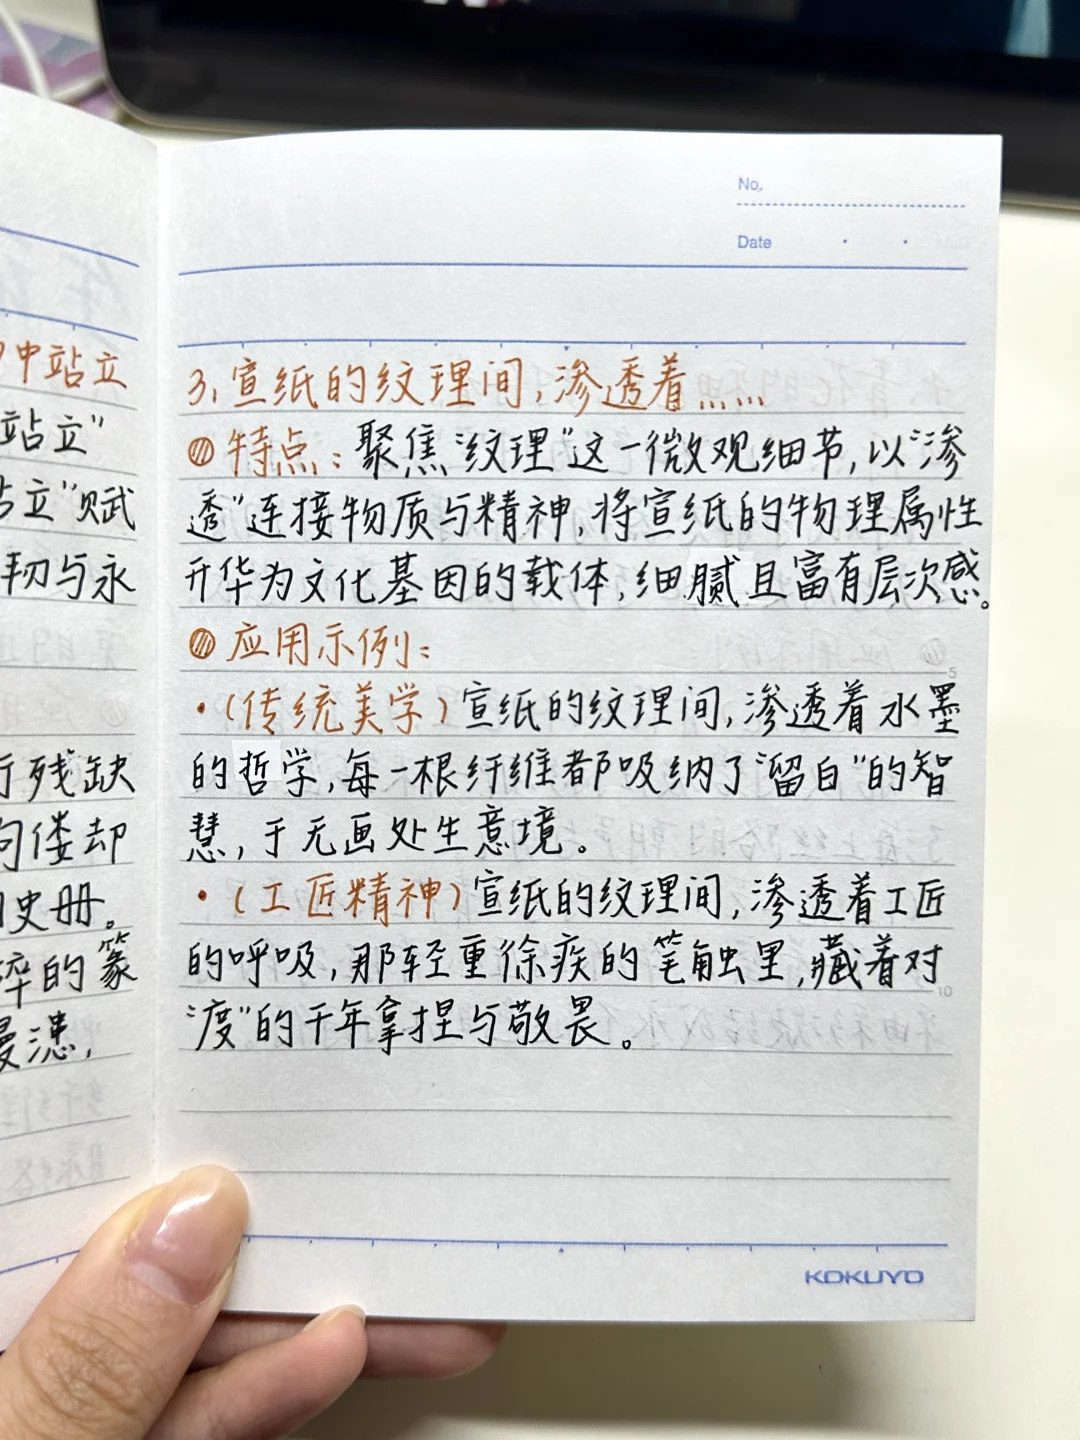 中站立
站立”
站立”赋
韧与永
残缺
佝偻却
史册。
碎的篆
漫漶，
No.
Date
3,宣纸的纹理间,渗透着……
特点:聚焦“纹理”这一微观细节,以“渗
透”连接物质与精神,将宣纸的物理属性
升华为文化基因的载体,细腻且富有层次感。
应用示例:
·(传统美学)宣纸的纹理间,渗透着水墨
的哲学,每一根纤维都吸纳了“留白”的智
慧,于无画处生意境。
·(工匠精神)宣纸的纹理间,渗透着工匠
的呼吸,那轻重徐疾的笔触里,藏着对
“度”的千年拿捏与敬畏。
5
10
KOKUYO